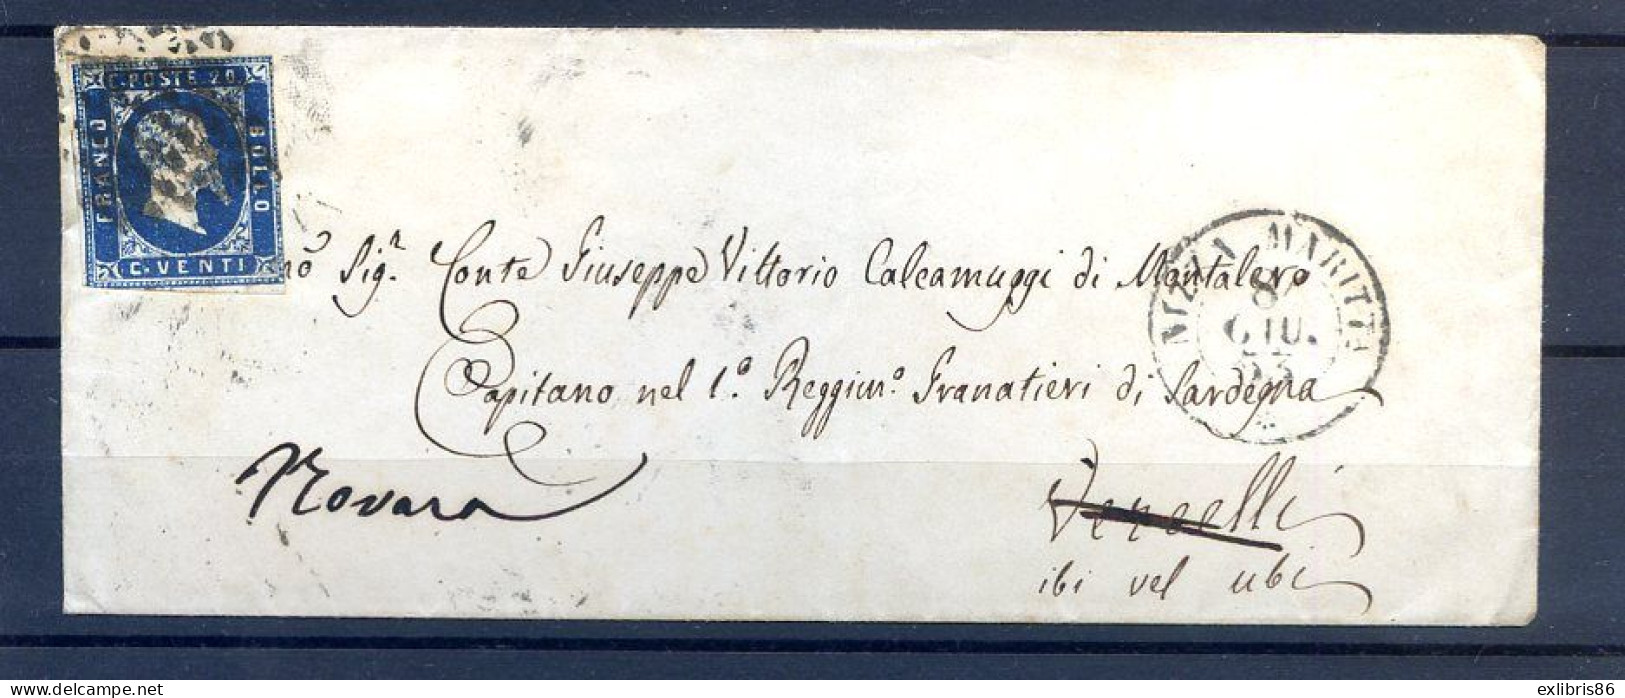 C. POSTE 20.
FRANCO
BOLLO
C. VENTI
Sig.r Conte Giuseppe Vittorio Calcamuggi di Montalero
Capitano nel 1.o Reggim.o Granatieri di Sardegna
NIZZA MARITTA
8
GIU.
53
Novara
Vercelli
ibi vel ubi
delcampe.net
exlibris86